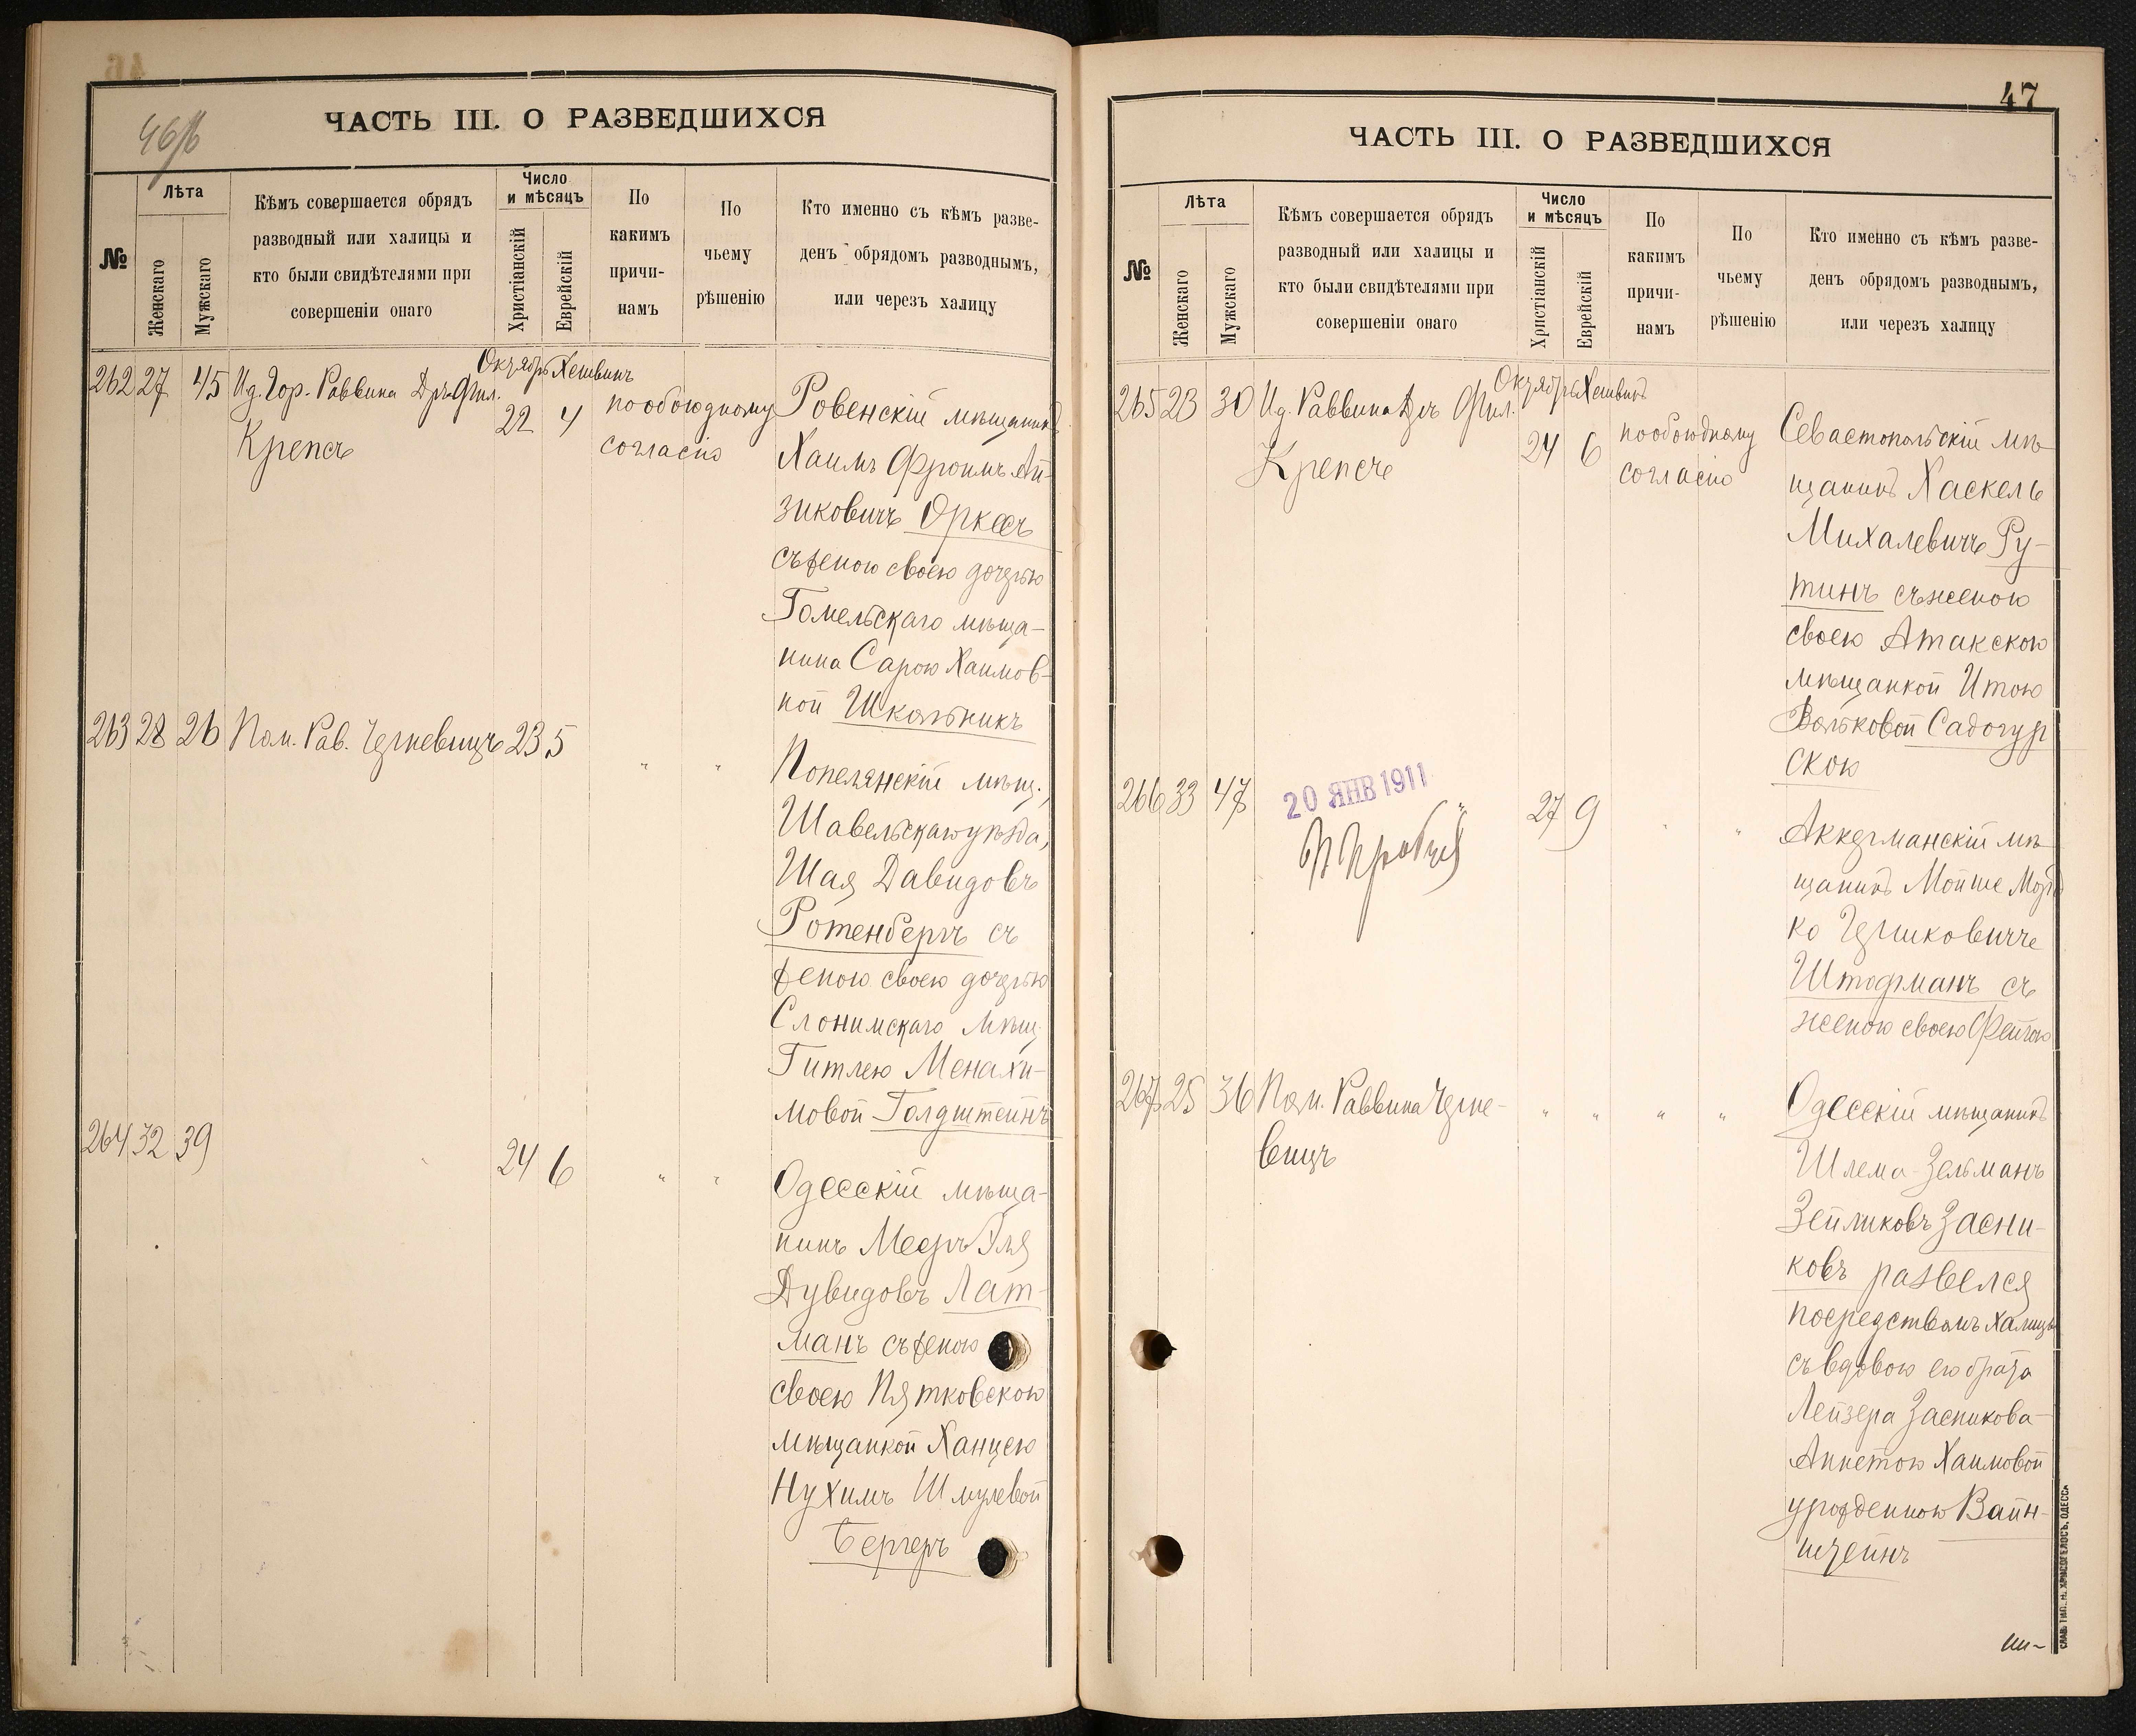 46
ЧАСТЬ III. О РАЗВЕДШИХСЯ
№
Лѣта
Женскаго
Мужскаго
Кѣмъ совершается обрядъ
разводный или халицы и
кто были свидѣтелями при
совершеніи онаго
Число
и мѣсяцъ
Христіанскій
Еврейскій
По
какимъ
причи-
намъ
По
чьему
рѣшенію
Кто именно съ кѣмъ разве-
денъ обрядомъ разводнымъ,
или черезъ халицу
262 27 45 Ид. Гор. Раввина Дръ Фил.
Крепсъ
Октябрь Хешвинъ
22 4
по обоюдному
согласію
Ровенскій мѣщанинъ
Хаимъ Фроимъ Ай-
зиковичъ Оркесъ
съ женою своею дочерью
Гомельскаго мѣща-
нина Сарою Хаимов-
ной Школьникъ
263 28 26 Пом. Рав. Черневицъ 23 5
" "
Попелянскій мѣщ.,
Шавельскаго уѣзда,
Шая Давидовъ
Ротенбергъ съ
женою своею дочерью
Слонимскаго мѣщ.
Гитлею Менахи-
мовой Голдштейнъ
264 32 39 " 24 6 " "
Одесскій мѣща-
нинъ Мееръ Эля
Дувидовъ Лат-
манъ съ женою
своею Пятковскою
мѣщанкой Ханцею
Нухимъ Шмулевой
Бергеръ
47
ЧАСТЬ III. О РАЗВЕДШИХСЯ
№
Лѣта
Женскаго
Мужскаго
Кѣмъ совершается обрядъ
разводный или халицы и
кто были свидѣтелями при
совершеніи онаго
Число
и мѣсяцъ
Христіанскій
Еврейскій
По
какимъ
причи-
намъ
По
чьему
рѣшенію
Кто именно съ кѣмъ разве-
денъ обрядомъ разводнымъ,
или черезъ халицу
265 23 30 Ид. Раввина Дръ Фил.
Крепсъ
Октябрь Хешвинъ
24 6
по обоюдному
согласію
Севастопольскій мѣ-
щанинъ Хаскель
Михалевичъ Ру-
тинъ съ женою
своею Атакскою
мѣщанкой Итою
Вольковой Садогур
скою
266 33 47 " 27 9 " "
20 ЯНВ 1911
Аккерманскій мѣ-
щанинъ Мойше Морд
ко Гершковичъ
Штофманъ съ
женою своею Фейгою
267 25 36 Пом. Раввина Черне-
вицъ
" " " "
Одесскій мѣщанинъ
Шлема-Зельманъ
Зейликовъ Засни-
ковъ развелся
посредствомъ халицы
съ вдовою его брата
Лейзера Засникова-
Аннетою Хаимовой
урожденною Вайн-
штейнъ
СЛАВ. ТИП. Н. ХРИСОГЕЛОСЪ, ОДЕССА